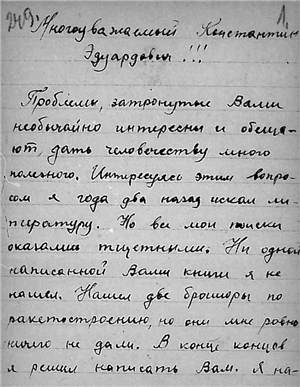 249. 1.
Многоуважаемый Константин
Эдуардович!!!
Проблемы, затронутые Вами
необычайно интересны и обеща-
ют, дать человечеству много
полезного. Интересуясь этим вопро-
сом я года два назад искал ли-
тературу. Но все мои поиски
оказались тщетными. Ни одной
написанной Вами книги я не
нашел. Нашел две брошюры по
ракетостроению, но они мне ровно
ничего не дали. В конце концов
я решил написать Вам. Я на-